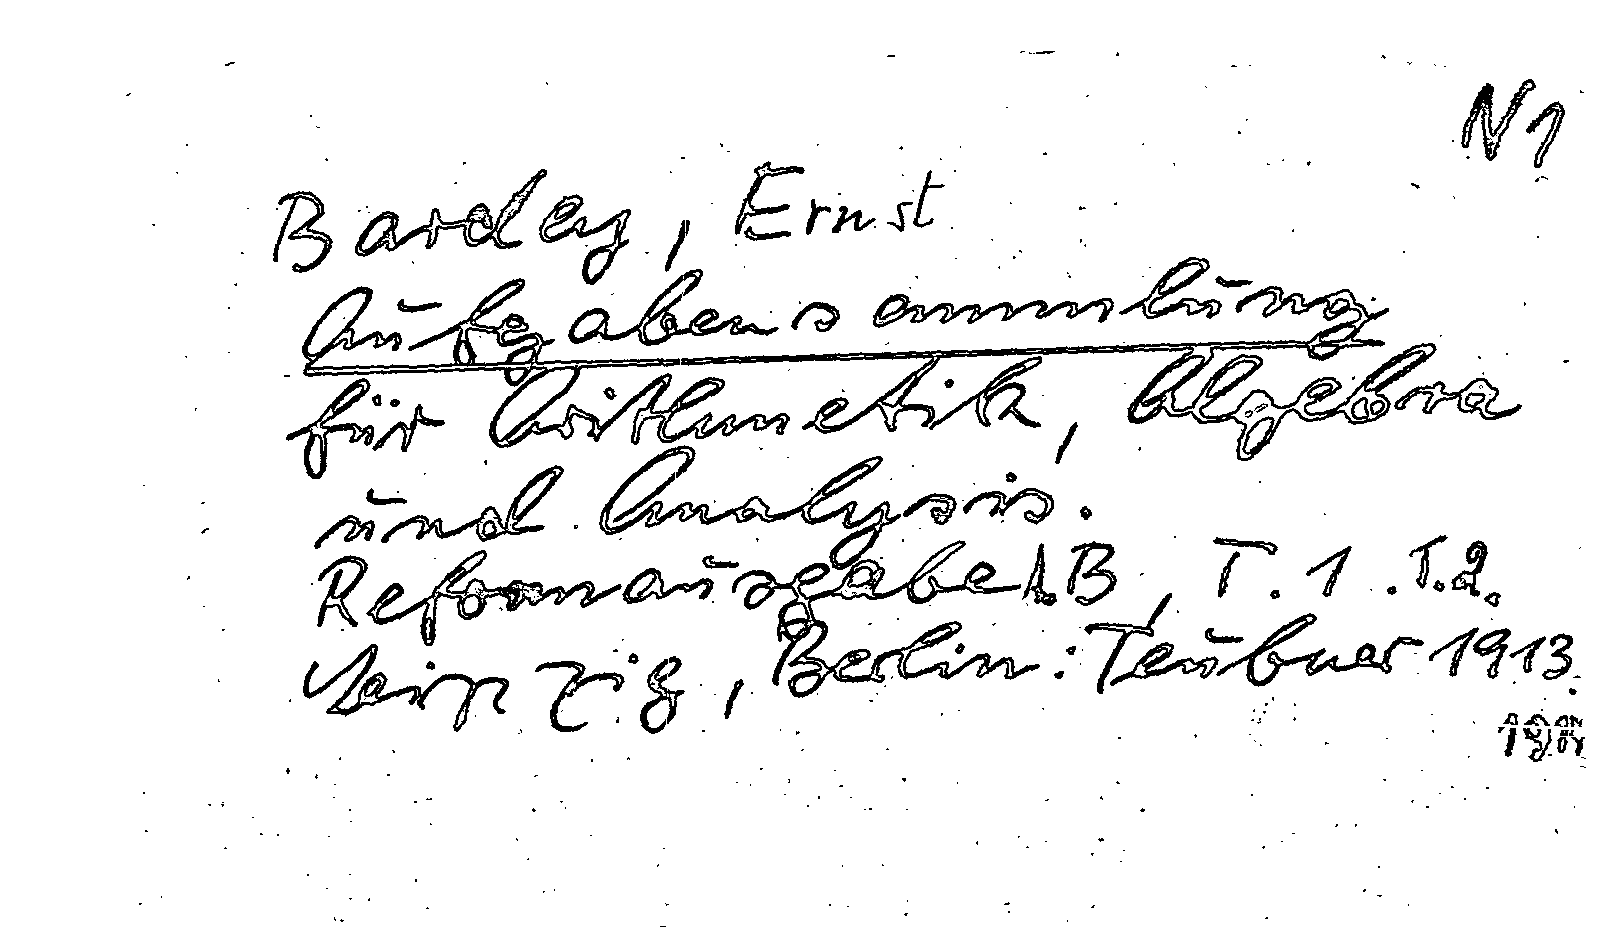 N 1
Bardey, Ernst
Aufgabensammlung
für Arithmetik, Algebra
und Analysis.
Reformausgabe B, T. 1. T. 2.
Leipzig, Berlin: Teubner 1913.